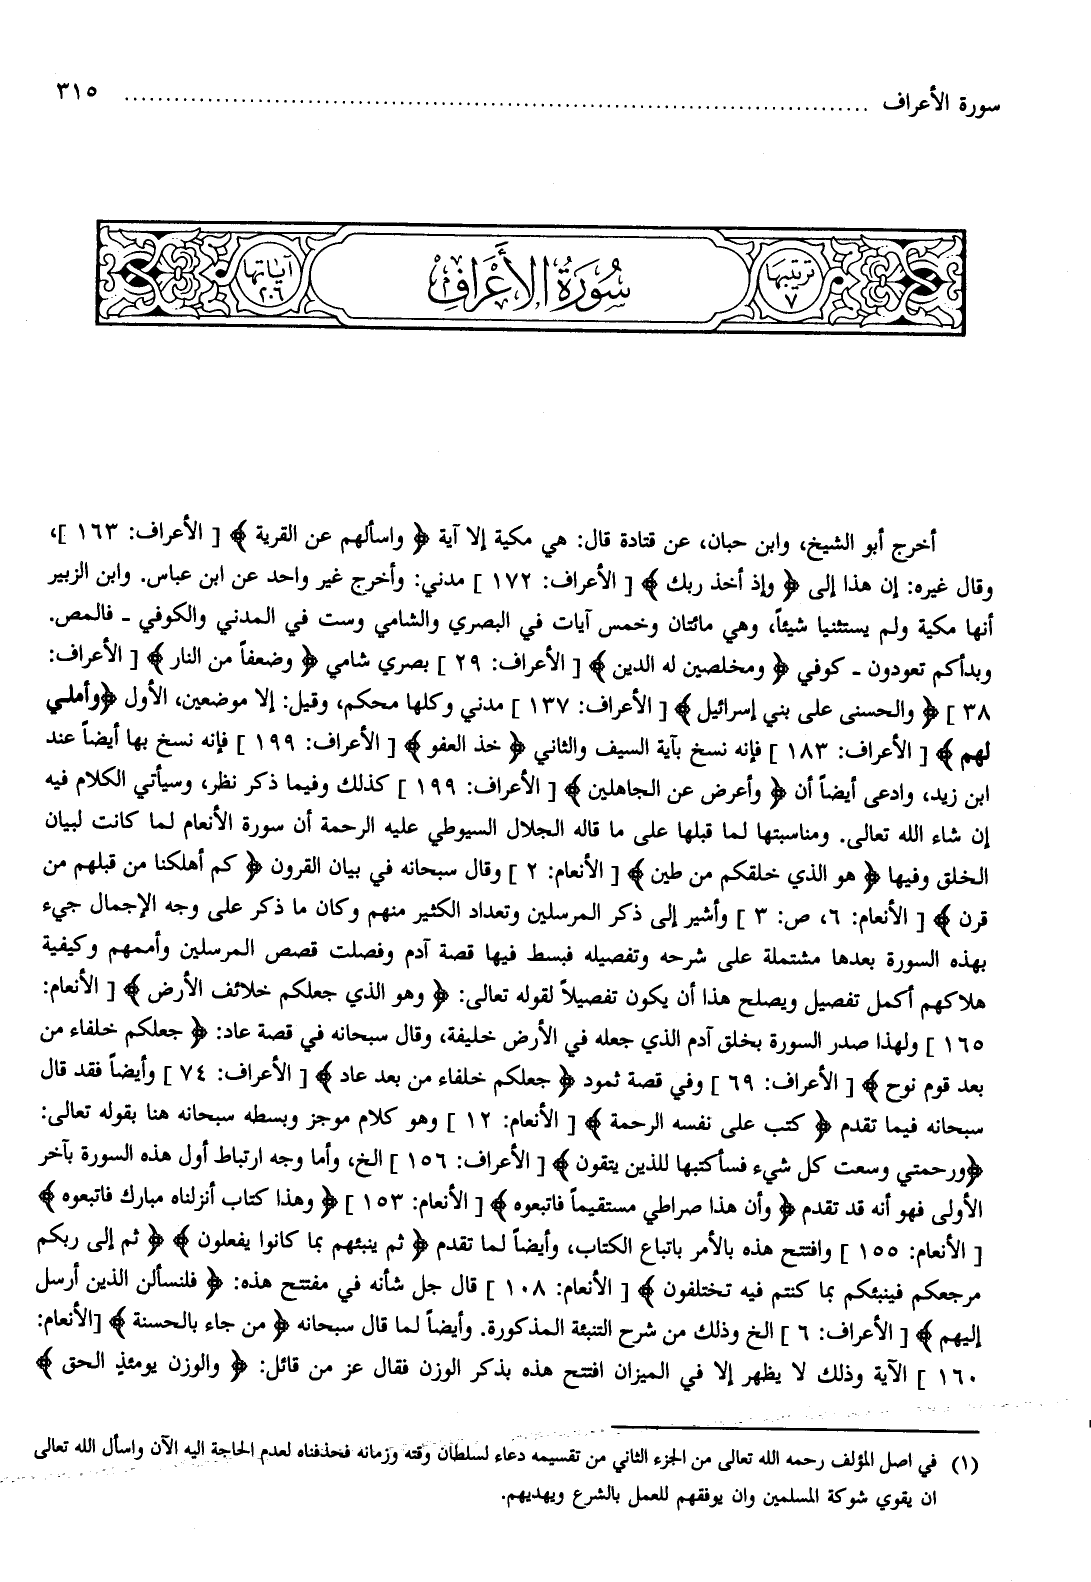 سورة الأعراف ........................................................................ ٣١٥
ترتيبها ٧
سُورَةُ الأَعْرَافِ
آياتها ٢٠٦
أخرج أبو الشيخ، وابن حبان، عن قتادة قال: هي مكية إلا آية ﴿ واسألهم عن القرية ﴾ [ الأعراف: ١٦٣ ]،
وقال غيره: إن هذا إلى ﴿ وإذ أخذ ربك ﴾ [ الأعراف: ١٧٢ ] مدني: وأخرج غير واحد عن ابن عباس. وابن الزبير
أنها مكية ولم يستثنيا شيئاً، وهي مائتان وخمس آيات في البصري والشامي وست في المدني والكوفي ـ فالمص.
وبدأكم تعودون ـ كوفي ﴿ ومخلصين له الدين ﴾ [ الأعراف: ٢٩ ] بصري شامي ﴿ وضعفاً من النار ﴾ [ الأعراف:
٣٨ ] ﴿ والحسنى على بني إسرائيل ﴾ [ الأعراف: ١٣٧ ] مدني وكلها محكم، وقيل: إلا موضعين، الأول ﴿وأملي
لهم ﴾ [ الأعراف: ١٨٣ ] فإنه نسخ بآية السيف والثاني ﴿ خذ العفو ﴾ [ الأعراف: ١٩٩ ] فإنه نسخ بها أيضاً عند
ابن زيد، وادعى أيضاً أن ﴿ وأعرض عن الجاهلين ﴾ [ الأعراف: ١٩٩ ] كذلك وفيما ذكر نظر، وسيأتي الكلام فيه
إن شاء الله تعالى. ومناسبتها لما قبلها على ما قاله الجلال السيوطي عليه الرحمة أن سورة الأنعام لما كانت لبيان
الخلق وفيها ﴿ هو الذي خلقكم من طين ﴾ [ الأنعام: ٢ ] وقال سبحانه في بيان القرون ﴿ كم أهلكنا من قبلهم من
قرن ﴾ [ الأنعام: ٦، ص: ٣ ] وأشير إلى ذكر المرسلين وتعداد الكثير منهم وكان ما ذكر على وجه الإجمال جيء
بهذه السورة بعدها مشتملة على شرحه وتفصيله فبسط فيها قصة آدم وفصلت قصص المرسلين وأممهم وكيفية
هلاكهم أكمل تفصيل ويصلح هذا أن يكون تفصيلاً لقوله تعالى: ﴿ وهو الذي جعلكم خلائف الأرض ﴾ [ الأنعام:
١٦٥ ] ولهذا صدر السورة بخلق آدم الذي جعله في الأرض خليفة، وقال سبحانه في قصة عاد: ﴿ جعلكم خلفاء من
بعد قوم نوح ﴾ [ الأعراف: ٦٩ ] وفي قصة ثمود ﴿ جعلكم خلفاء من بعد عاد ﴾ [ الأعراف: ٧٤ ] وأيضاً فقد قال
سبحانه فيما تقدم ﴿ كتب على نفسه الرحمة ﴾ [ الأنعام: ١٢ ] وهو كلام موجز وبسطه سبحانه هنا بقوله تعالى:
﴿ورحمتي وسعت كل شيء فسأكتبها للذين يتقون ﴾ [ الأعراف: ١٥٦ ] الخ، وأما وجه ارتباط أول هذه السورة بآخر
الأولى فهو أنه قد تقدم ﴿ وأن هذا صراطي مستقيماً فاتبعوه ﴾ [ الأنعام: ١٥٣ ] ﴿ وهذا كتاب أنزلناه مبارك فاتبعوه ﴾
[ الأنعام: ١٥٥ ] وافتتح هذه بالأمر باتباع الكتاب، وأيضاً لما تقدم ﴿ ثم ينبئهم بما كانوا يفعلون ﴾ ﴿ ثم إلى ربكم
مرجعكم فينبئكم بما كنتم فيه تختلفون ﴾ [ الأنعام: ١٠٨ ] قال جل شأنه في مفتتح هذه: ﴿ فلنسألن الذين أرسل
إليهم ﴾ [ الأعراف: ٦ ] الخ وذلك من شرح التنبئة المذكورة. وأيضاً لما قال سبحانه ﴿ من جاء بالحسنة ﴾ [الأنعام:
١٦٠ ] الآية وذلك لا يظهر إلا في الميزان افتتح هذه بذكر الوزن فقال عز من قائل: ﴿ والوزن يومئذٍ الحق ﴾
(١) في اصل المؤلف رحمه الله تعالى من الجزء الثاني من تقسيمه دعاء لسلطان وقته وزمانه فحذفناه لعدم الحاجة اليه الآن واسأل الله تعالى
ان يقوي شوكة المسلمين وان يوفقهم للعمل بالشرع ويهديهم.